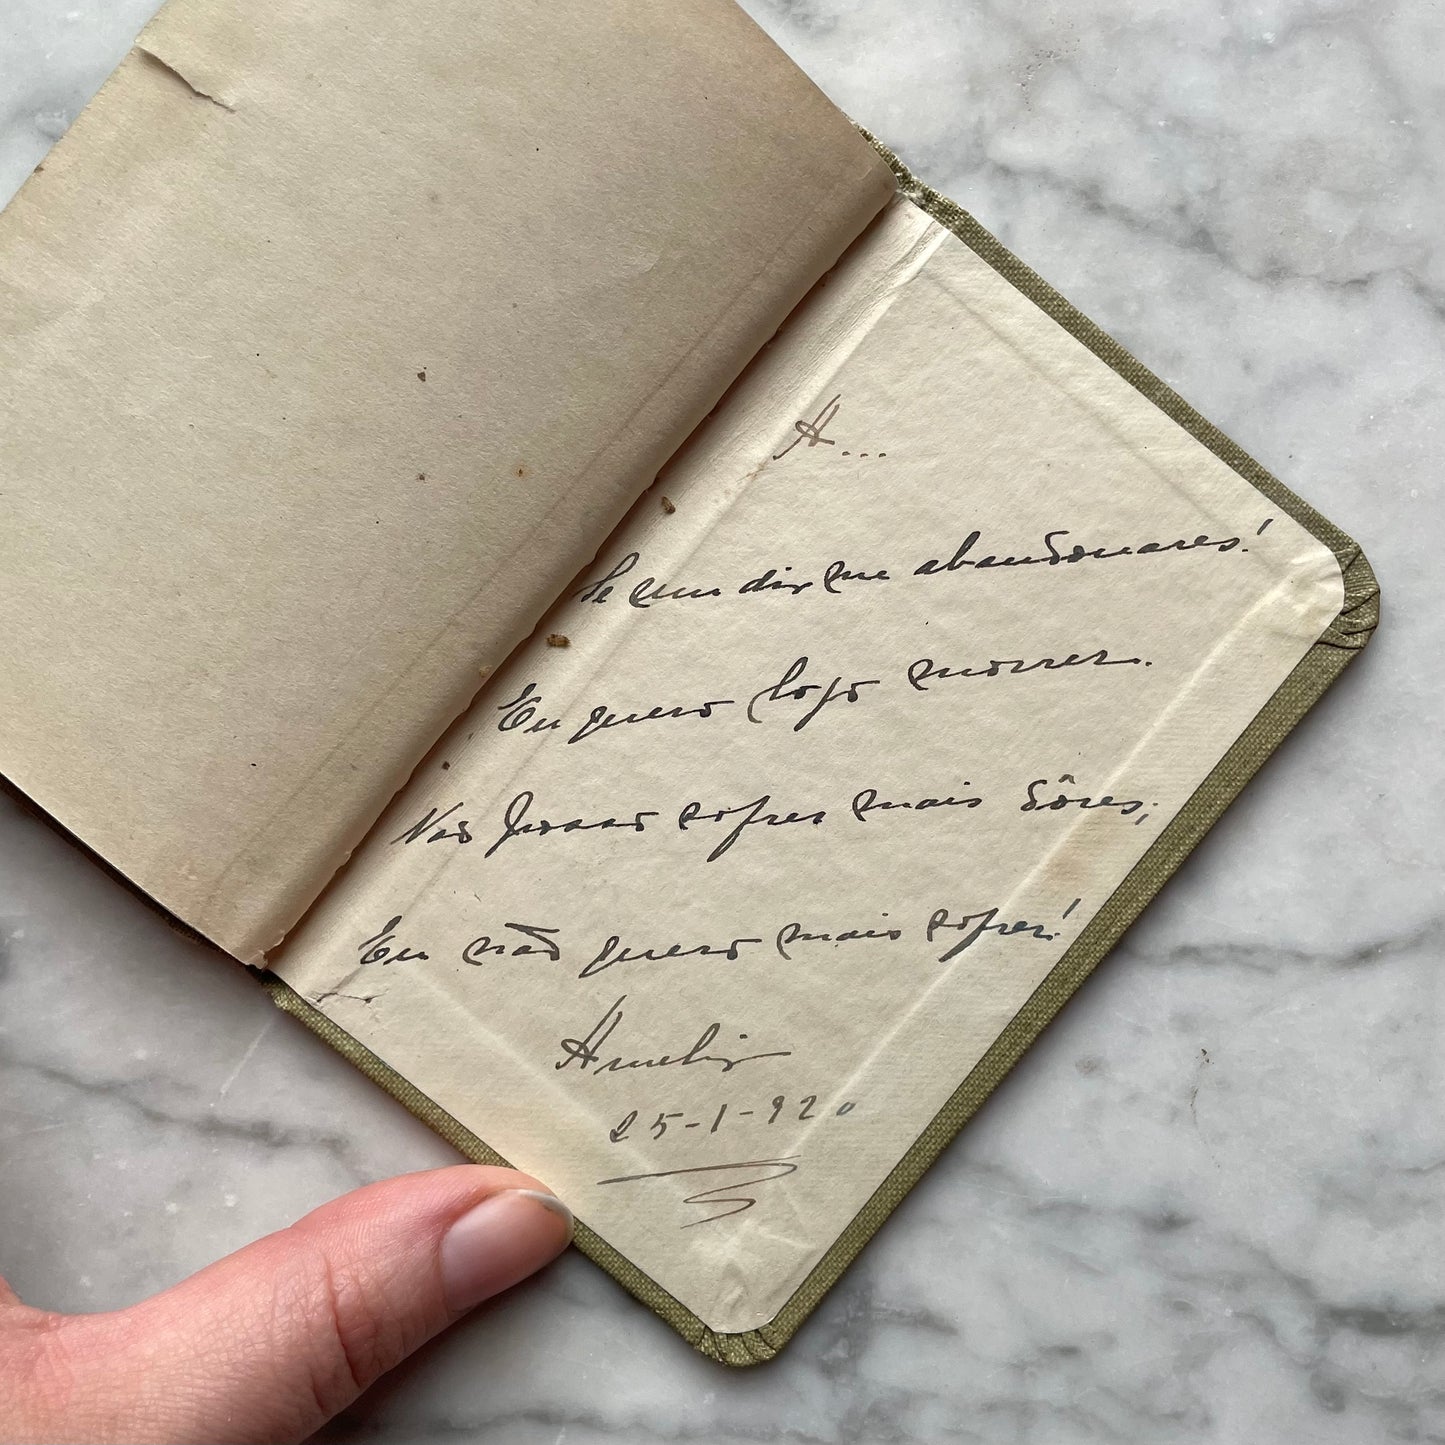 A...
Se um dia me abandonares!
Eu quero logo morrer.
Não posso sofrer mais dôres;
Eu não quero mais sofrer!
Amelia
25-1-920